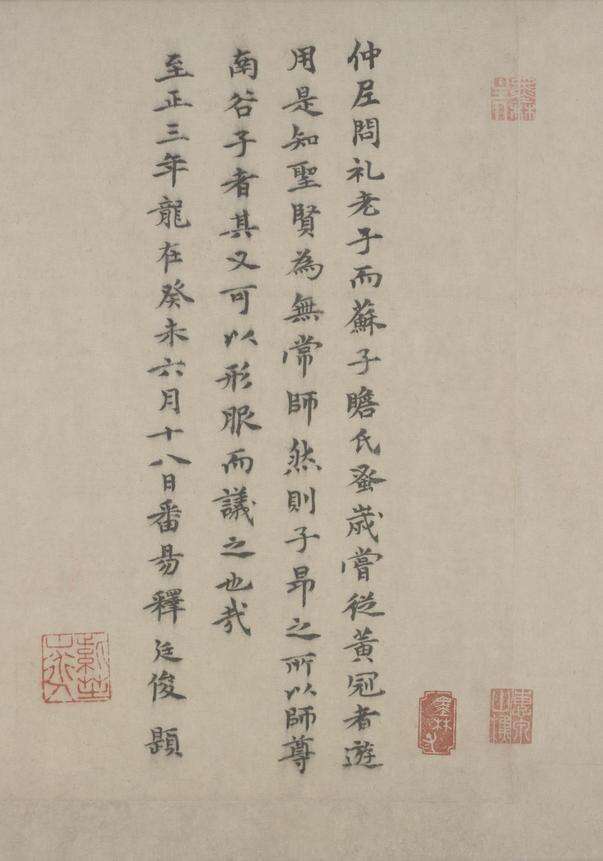 仲尼問礼老子而蘇子瞻氏蚤歲嘗從黃冠者遊
用是知聖賢為無常師然則子昂之所以師尊
南谷子者其又可以形服而議之也哉
至正三年龍在癸未六月十八日番昜釋廷俊題